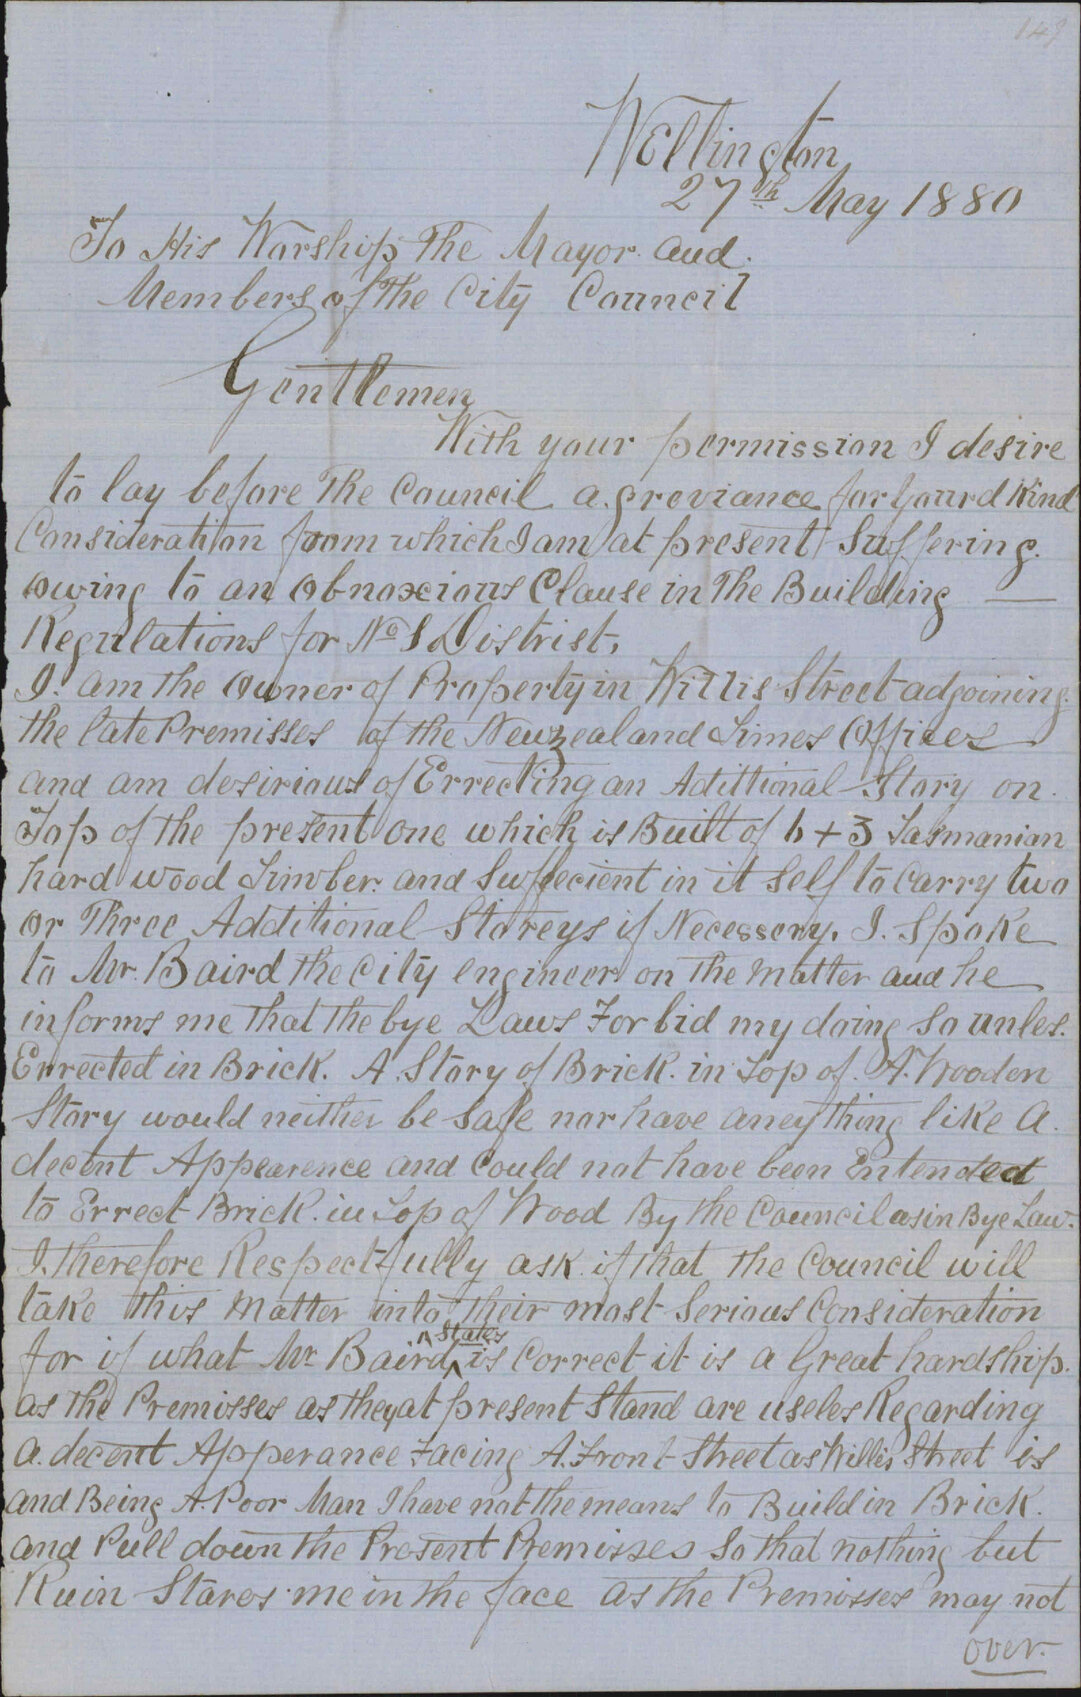 149
Wellington
27th May 1880
To His Worship The Mayor and
Members of The City Council
Gentlemen
With your permission I desire
to lay before The Council a greviance for Yourd Kind
Consideration from which I am at present Suffering
owing to an Obnoxcious Clause in The Building —
Regulations for No 1 Distrist,
I. am the Owner of Property in Willis Street adjoining
the late Premisses of the New zealand Times Offices
and am desirious of Errecting an Adittional Story on
Top of the present one which is Built of 6 + 3 Tasmanian
hard wood Timber and Suffecient in it Self to Carry two
or Three Additional Storeys if Necessery. I. Spoke
to Mr. Baird the City Engineer on The Matter and he
informs me that the bye Laws Forbid my doing so unles.
Errected in Brick. A. Story of Brick. in Top of A. Wooden
Story would neither be Safe nor have aneything like A.
decent Appearence and Could not have been Entended
to Errect Brick. in Top of Wood By the Council as in Bye Law.
I. therefore Respectfully ask if that the Council will
take this Matter into Their most Serious Consideration
for if what Mr Baird states is Correct it is a Great hardship.
as the Premisses as they at present Stand are useles Regarding
a. decent Apperance Facing A. Front Street as Willis Street is
and Being A. Poor Man I have not the means to Build in Brick.
and Pull down the Present Premisses So that nothing but
Ruin Stares me in the face as the Premisses may not
over.